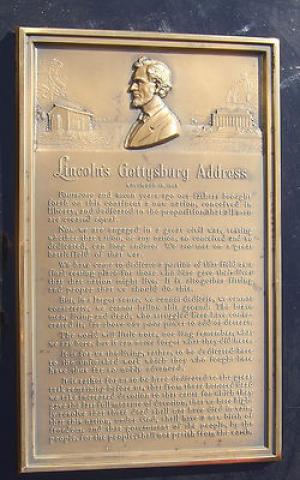 Lincoln's Gettysburg Address
NOVEMBER 19, 1863
Fourscore and seven years ago our fathers brought
forth on this continent a new nation, conceived in
liberty, and dedicated to the proposition that all men
are created equal.
Now we are engaged in a great civil war, testing
whether that nation, or any nation, so conceived and so
dedicated, can long endure. We are met on a great
battlefield of that war.
We have come to dedicate a portion of this field as a
final resting place for those who here gave their lives
that that nation might live. It is altogether fitting
and proper that we should do this.
But, in a larger sense, we cannot dedicate, we cannot
consecrate, we cannot hallow this ground. The brave
men, living and dead, who struggled here have conse-
crated it, far above our poor power to add or detract.
The world will little note, nor long remember, what
we say here, but it can never forget what they did here.
It is for us the living, rather, to be dedicated here
to the unfinished work which they who fought here
have thus far so nobly advanced.
It is rather for us to be here dedicated to the great
task remaining before us, that from these honored dead
we take increased devotion to that cause for which they
gave the last full measure of devotion, that we here highly
resolve that these dead shall not have died in vain,
that this nation, under God, shall have a new birth of
freedom, and that government of the people, by the
people, for the people, shall not perish from the earth.